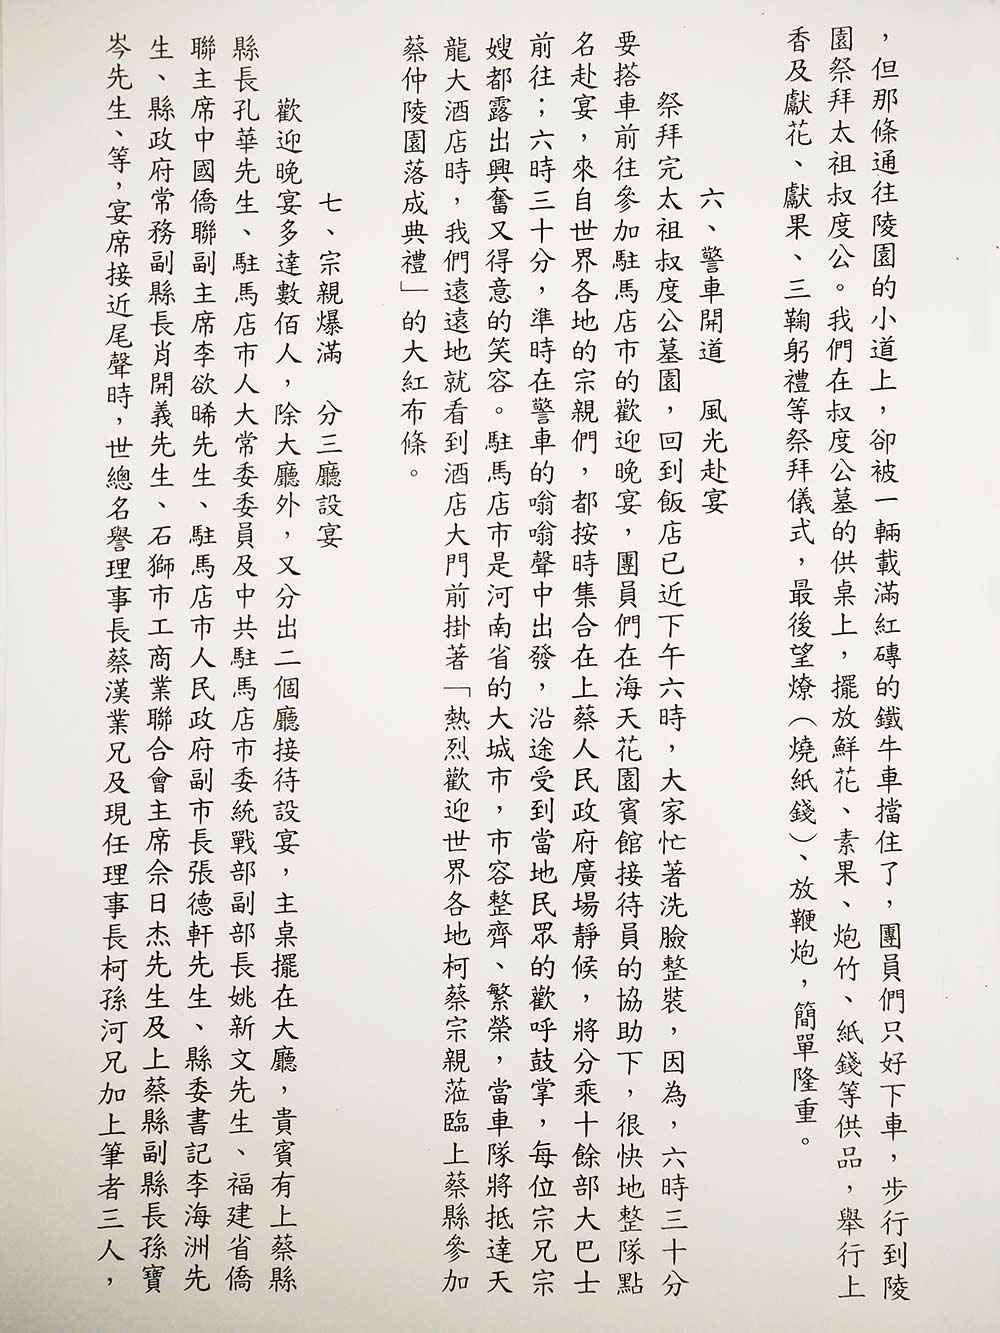 ，但那條通往陵園的小道上，卻被一輛載滿紅磚的鐵牛車擋住了，團員們只好下車，步行到陵
園祭拜太祖叔度公。我們在叔度公墓的供桌上，擺放鮮花、素果、炮竹、紙錢等供品，舉行上
香及獻花、獻果、三鞠躬禮等祭拜儀式，最後望燎（燒紙錢）、放鞭炮，簡單隆重。
六、警車開道　風光赴宴
祭拜完太祖叔度公墓園，回到飯店已近下午六時，大家忙著洗臉整裝，因為，六時三十分
要搭車前往參加駐馬店市的歡迎晚宴，團員們在海天花園賓館接待員的協助下，很快地整隊點
名赴宴，來自世界各地的宗親們，都按時集合在上蔡人民政府廣場靜候，將分乘十餘部大巴士
前往；六時三十分，準時在警車的嗡嗡聲中出發，沿途受到當地民眾的歡呼鼓掌，每位宗兄宗
嫂都露出興奮又得意的笑容。駐馬店市是河南省的大城市，市容整齊、繁榮，當車隊將抵達天
龍大酒店時，我們遠遠地就看到酒店大門前掛著「熱烈歡迎世界各地柯蔡宗親蒞臨上蔡縣參加
蔡仲陵園落成典禮」的大紅布條。
七、宗親爆滿　分三廳設宴
歡迎晚宴多達數佰人，除大廳外，又分出二個廳接待設宴，主桌擺在大廳，貴賓有上蔡縣
縣長孔華先生、駐馬店市人大常委委員及中共駐馬店市委統戰部副部長姚新文先生、福建省僑
聯主席中國僑聯副主席李欲晞先生、駐馬店市人民政府副市長張德軒先生、縣委書記李海洲先
生、縣政府常務副縣長肖開義先生、石獅市工商業聯合會主席佘日杰先生及上蔡縣副縣長孫寶
岑先生、等，宴席接近尾聲時，世總名譽理事長蔡漢業兄及現任理事長柯孫河兄加上筆者三人，